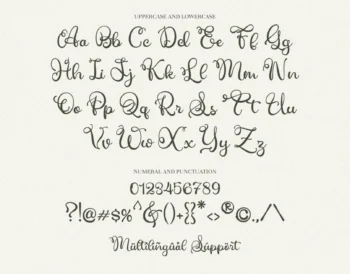 UPPERCASE AND LOWERCASE
Aa Bb Cc Dd Ee Ff Gg
Hh Ii Jj Kk Ll Mm Nn
Oo Pp Qq Rr Ss Tt Uu
Vv Ww Xx Yy Zz
NUMERAL AND PUNCTUATION
0123456789
?!@#$%^&()+{}*<>®©.,/\
Multilingual Support